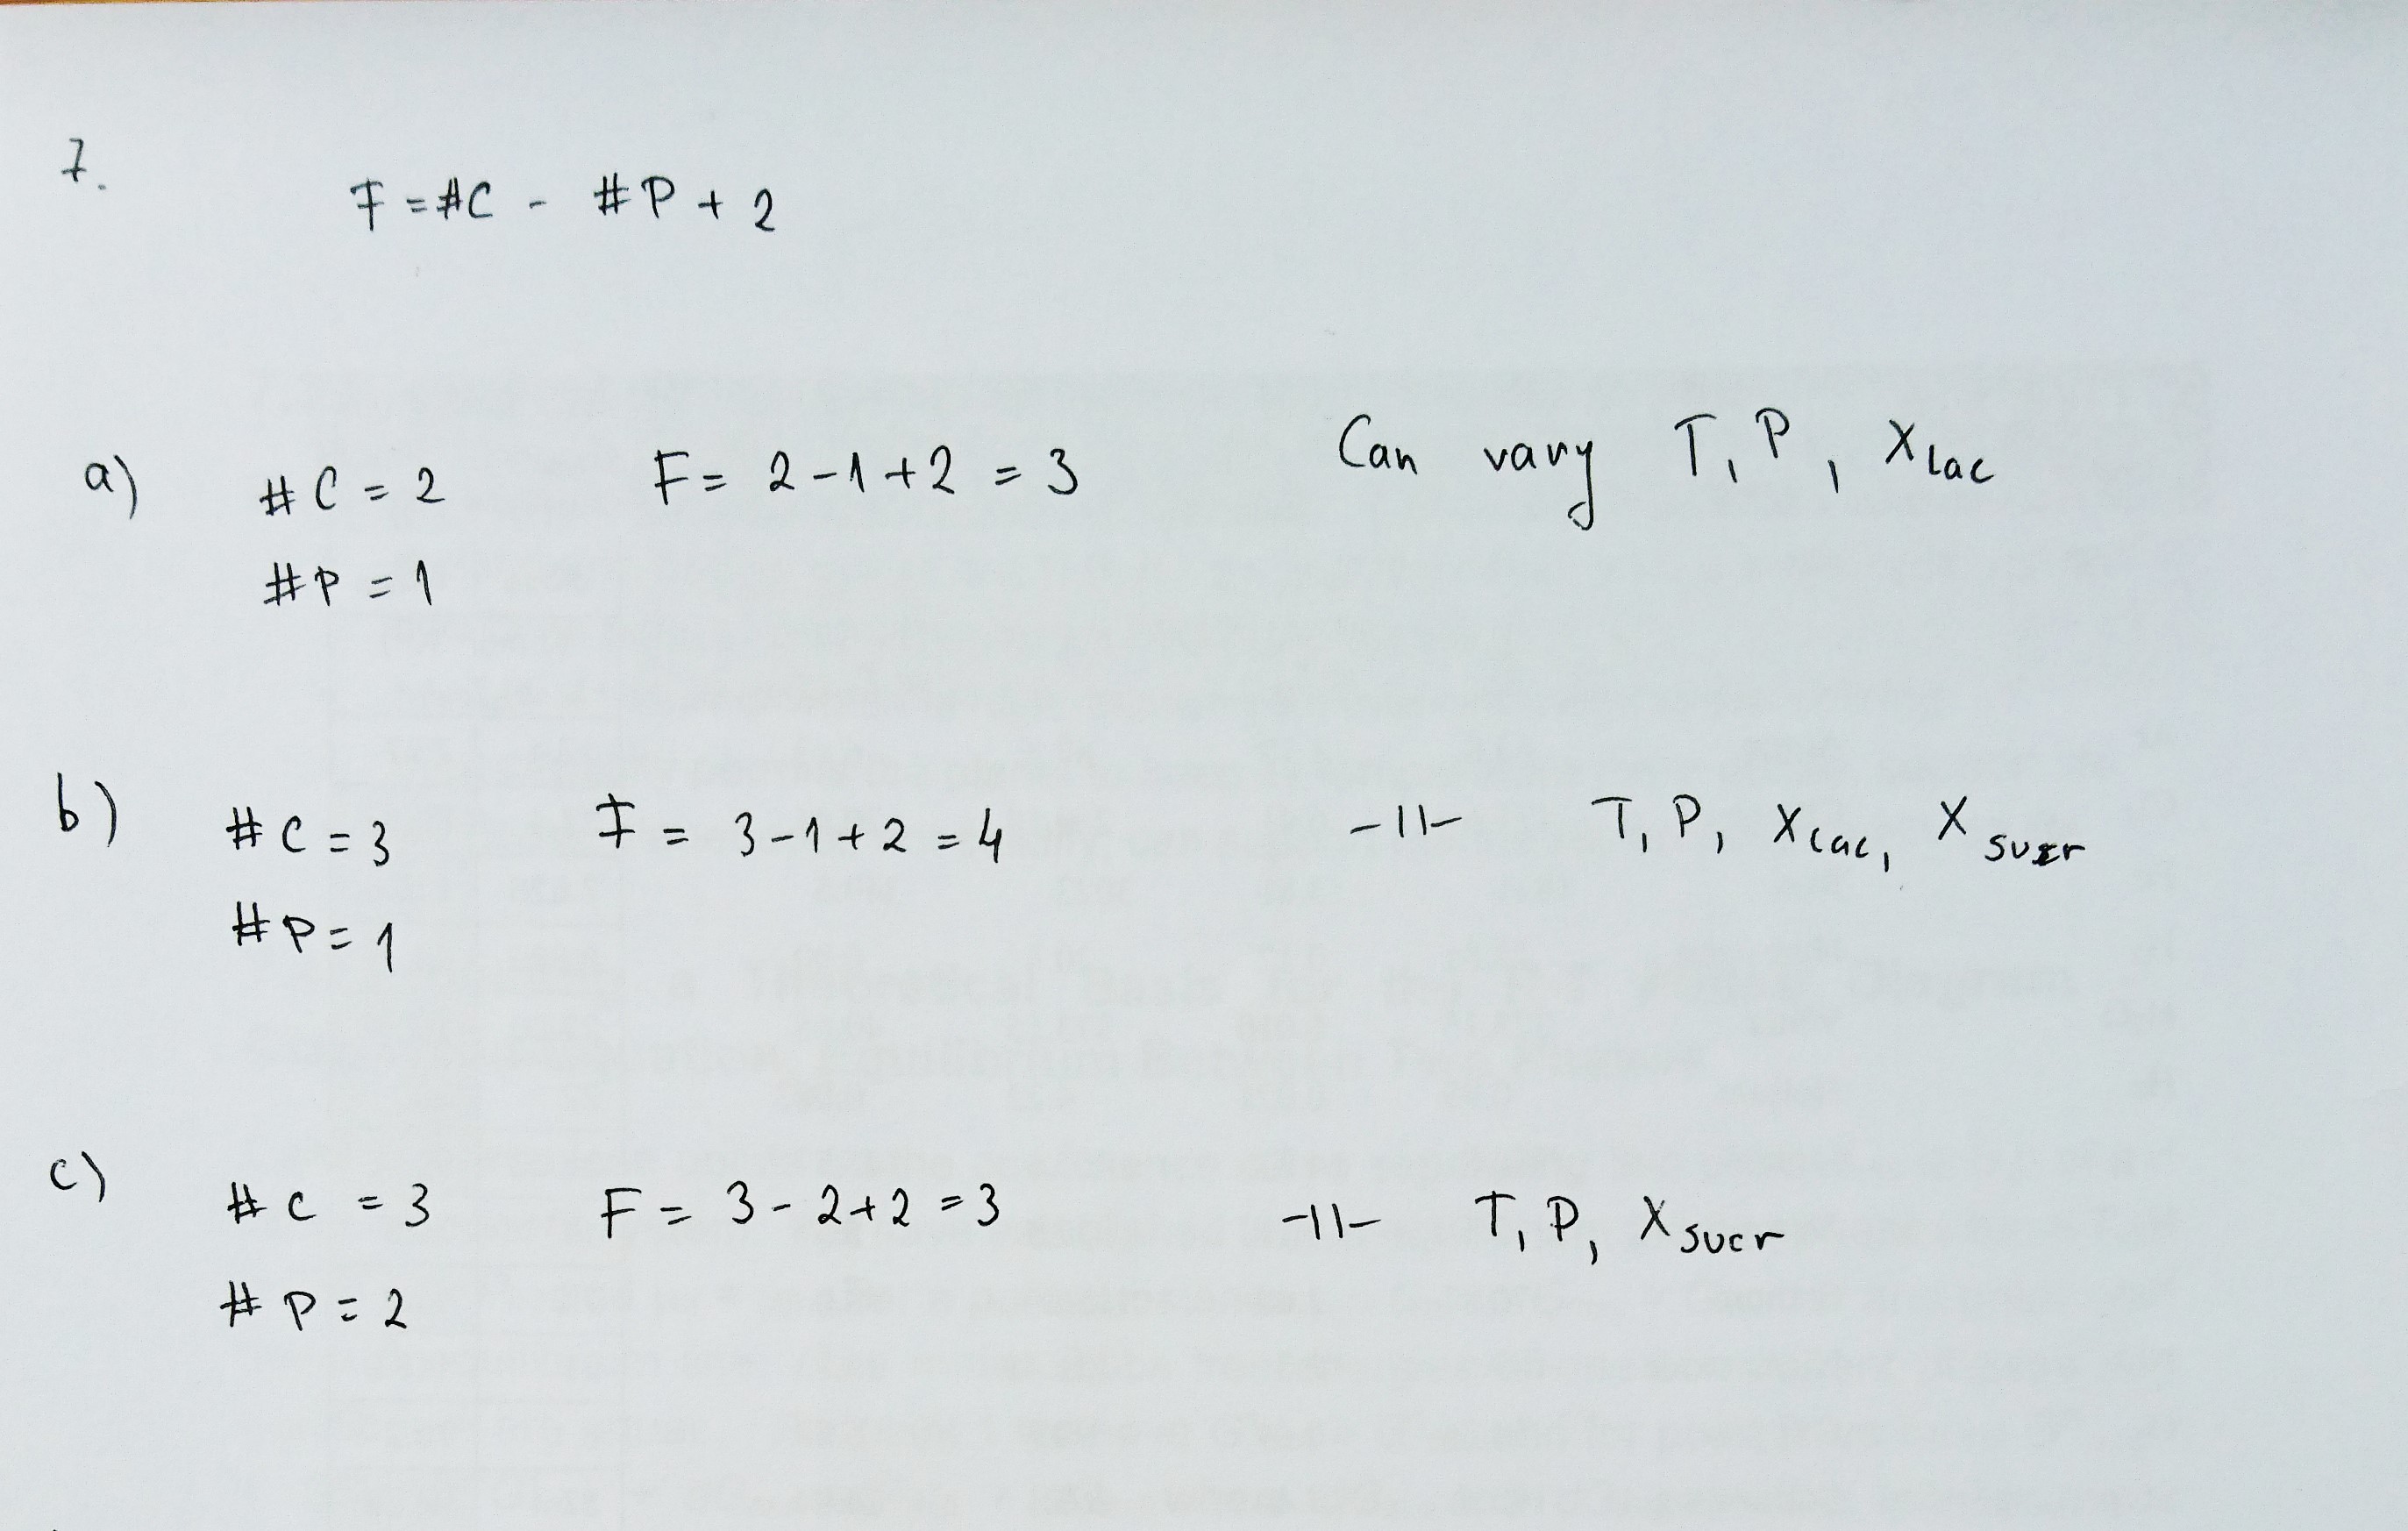 7.
F = #C - #P + 2
a) #C = 2 F = 2 - 1 + 2 = 3 Can vary T, P, X lac
#P = 1
b) #C = 3 F = 3 - 1 + 2 = 4 -11- T, P, X lac, X sucr
#P = 1
c) #C = 3 F = 3 - 2 + 2 = 3 -11- T, P, X sucr
#P = 2